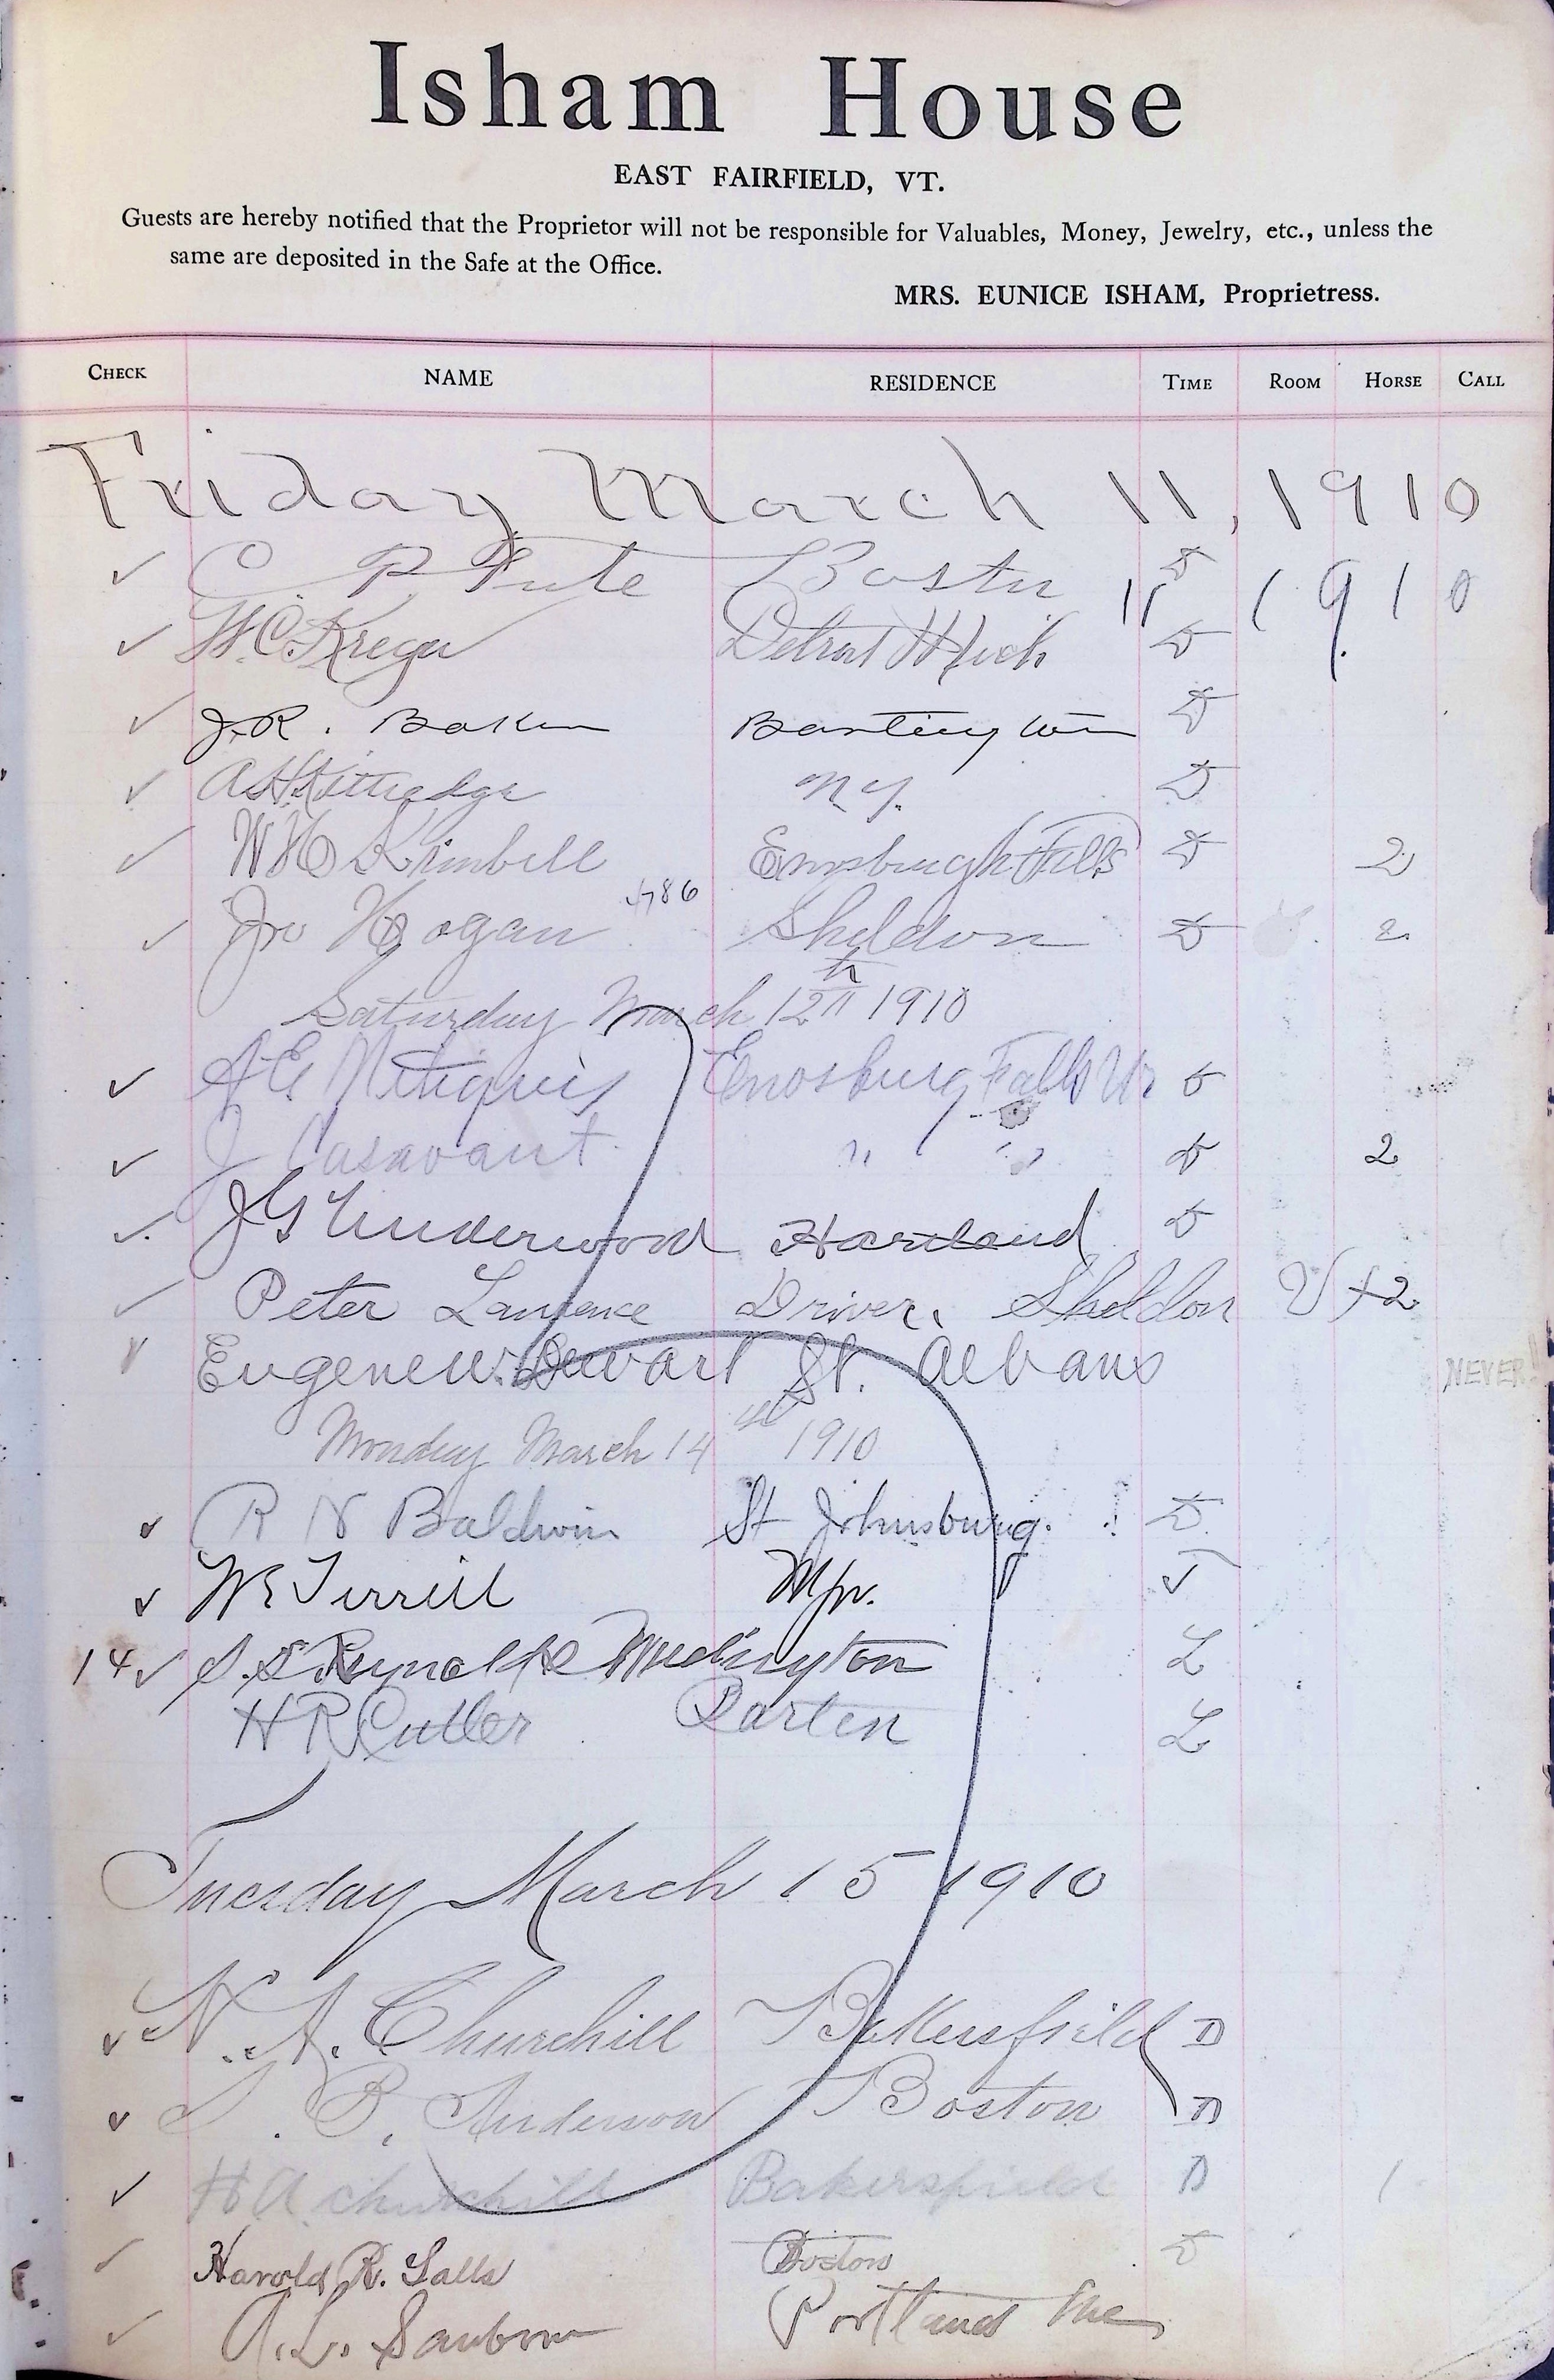 Isham House
EAST FAIRFIELD, VT.
Guests are hereby notified that the Proprietor will not be responsible for Valuables, Money, Jewelry, etc., unless the
same are deposited in the Safe at the Office.
MRS. EUNICE ISHAM, Proprietress.
CHECK NAME RESIDENCE TIME ROOM HORSE CALL
Friday March 11, 1910
✓ C. P. Boston D 11 1910
✓ W.C. Detroit Mich D
✓ J.R. Baker D
✓ A H Kittredge N.Y. D
✓ W H Kimbell Enosburgh Falls D 2
✓ Jno Hogan Sheldon D 2
Saturday March 12th 1910
✓ A E Enosburg Falls Vt D
✓ J Casavant " " D 2
✓ J G Underwood Hartland D
✓ Peter Lawrence Driver, Sheldon 2
Eugene W. Dewart St. Albans NEVER!!
Monday March 14 1910
✓ R N Baldwin St Johnsburg. D
✓ W E Terrill Mpr. ✓
14 ✓ S. S. Reynolds L
H R Cutler Barton L
Tuesday March 15 1910
✓ N. A. Churchill Bakersfield D
✓ S. B. Anderson Boston D
✓ H A Churchill Bakersfield D 1
✓ Harold R. Salls Boston D
✓ A. L. Sanborn Portland Me